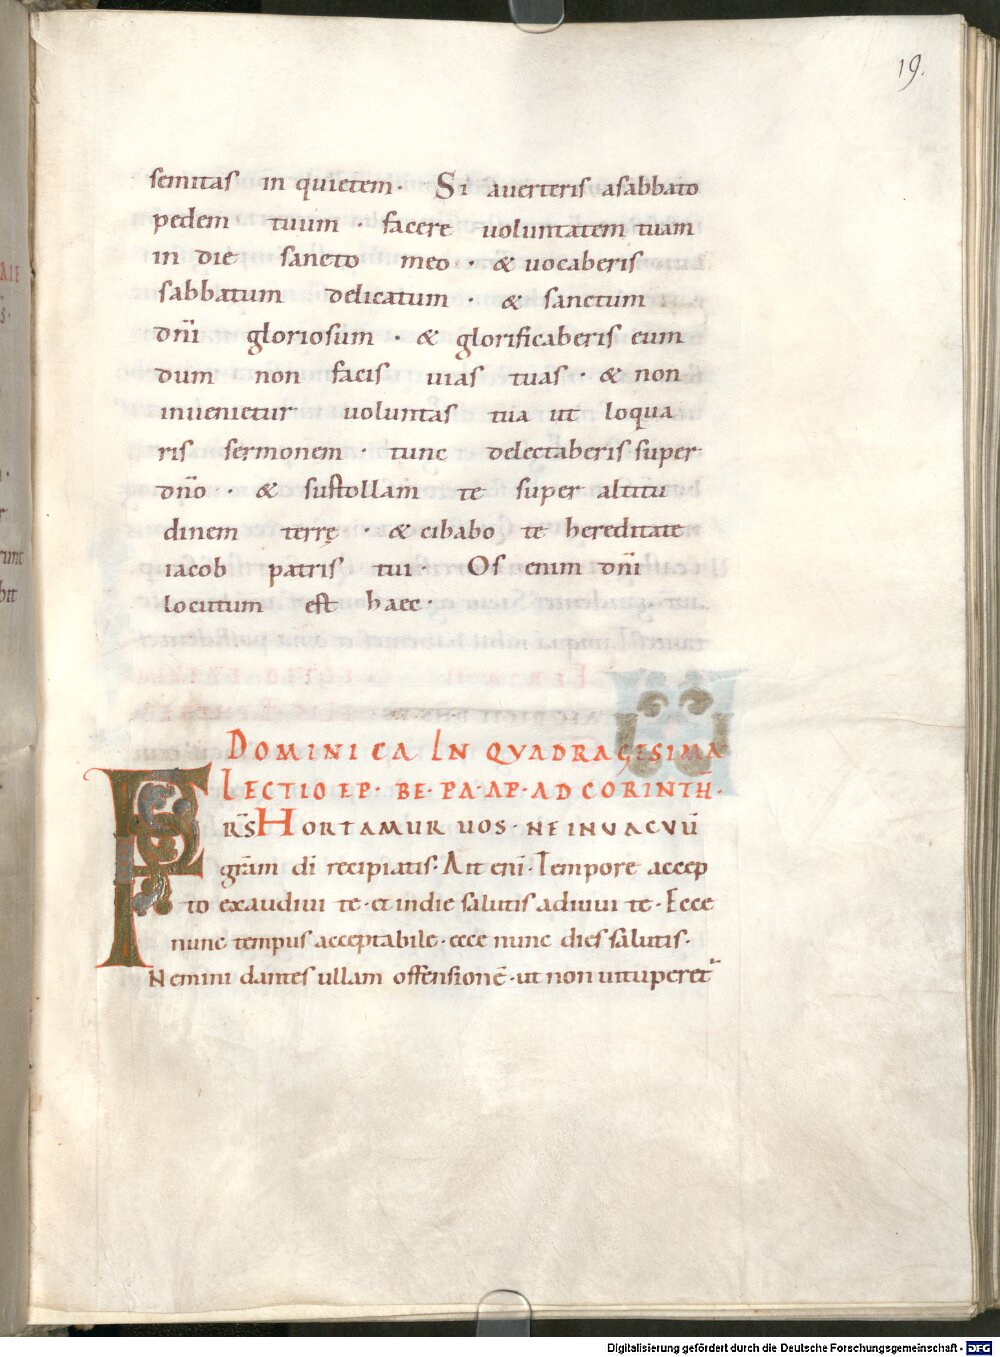 19.
semitas in quietem · Si auerteris asabbato
pedem tuum · facere uoluntatem tuam
in die sancto meo · & uocaberis
sabbatum delicatum · & sanctum
dn̄i gloriosum · & glorificaberis eum
dum non facis uias tuas · & non
inuenietur uoluntas tua ut loqua
ris sermonem · tunc delectaberis super
dn̄o · & sustollam te super altitu
dinem terrę · & cibabo te hereditate
iacob patris tui · Os enim dn̄i
locutum est haec ·
DOMINICA IN QVADRAGESIMA
LECTIO EP· BE· PA· AP· AD CORINTH̄·
FRS̄ HORTAMUR UOS · NE IN VACVŪ
grām dī recipiatis · Ait enī · Tempore accep
to exaudiui te · et in die salutis adiuui te · Ecce
nunc tempus acceptabile · ecce nunc dies salutis ·
Nemini dantes ullam offensionē · ut non uituperet᷒
Digitalisierung gefördert durch die Deutsche Forschungsgemeinschaft - DFG